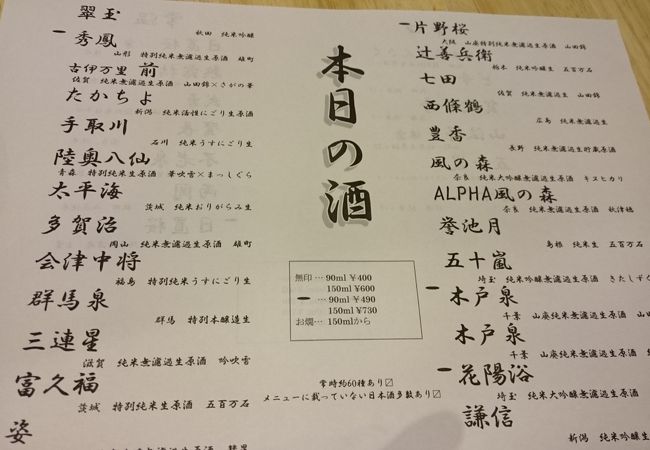 本日の酒
翠玉
秋田 純米吟醸
━ 秀鳳
山形 特別純米無濾過生原酒 雄町
古伊万里 前
佐賀 純米無濾過生原酒 山田錦×さがの華
たかちよ
新潟 純米活性にごり生原酒
手取川
石川 純米うすにごり生
陸奥八仙
青森 特別純米無濾過生原酒 華吹雪×まっしぐら
太平海
茨城 純米おりがらみ生
多賀治
岡山 純米無濾過生原酒 雄町
会津中将
福島 特別純米うすにごり生
群馬泉
群馬 特別本醸造生
三連星
滋賀 純米無濾過生原酒 吟吹雪
富久福
茨城 特別純米生原酒 五百万石
姿
無印…90ml ¥400
150ml ¥600
━ …90ml ¥490
150ml ¥730
お燗…150mlから
常時約60種あり〼
メニューに載っていない日本酒多数あり〼
━ 片野桜
大阪 山廃特別純米無濾過生原酒 山田錦
辻善兵衛
栃木 純米吟醸生 五百万石
七田
佐賀 純米無濾過生原酒 山田錦
西條鶴
広島 純米無濾過生
豊香
長野 純米無濾過生貯蔵原酒
風の森
奈良 純米大吟醸無濾過生原酒 キヌヒカリ
ALPHA風の森
奈良 純米無濾過生原酒 秋津穂
誉池月
島根 純米生 五百万石
五十嵐
埼玉 純米吟醸無濾過生原酒 きたしずく
━ 木戸泉
千葉 山廃純米無濾過生原酒
木戸泉
千葉 山廃純米無濾過生原酒
━ 花陽浴
埼玉 純米大吟醸無濾過生原酒
謙信
新潟 純米吟醸